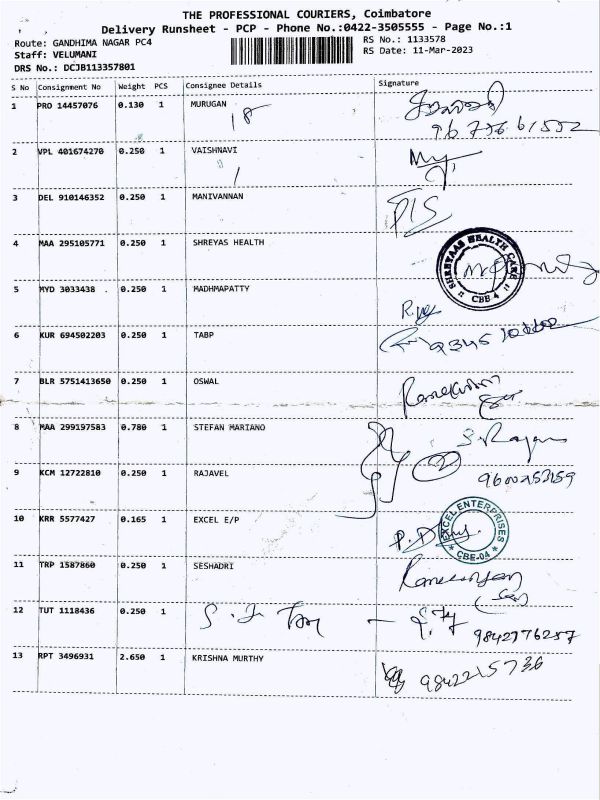 THE PROFESSIONAL COURIERS, Coimbatore
Delivery Runsheet - PCP - Phone No.:0422-3505555 - Page No.:1
Route: GANDHIMA NAGAR PC4
RS No.: 1133578
Staff: VELUMANI
RS Date: 11-Mar-2023
DRS No.: DCJB113357801
S No Consignment No Weight PCS Consignee Details Signature
1 PRO 14457076 0.130 1 MURUGAN
18
2 VPL 401674270 0.250 1 VAISHNAVI
3 DEL 910146352 0.250 1 MANIVANNAN
4 MAA 295105771 0.250 1 SHREYAS HEALTH
SHREYAAS HEALTH CARE CBE 4
5 MYD 3033438 . 0.250 1 MADHMAPATTY
6 KUR 694502203 0.250 1 TABP
7 BLR 5751413650 0.250 1 OSWAL
8 MAA 299197583 0.780 1 STEFAN MARIANO
9 KCM 12722810 0.250 1 RAJAVEL
9600253159
10 KRR 5577427 0.165 1 EXCEL E/P
EXCEL ENTERPRISES CBE-04
11 TRP 1587860 0.250 1 SESHADRI
12 TUT 1118436 0.250 1
9842776257
13 RPT 3496931 2.650 1 KRISHNA MURTHY
9842215736